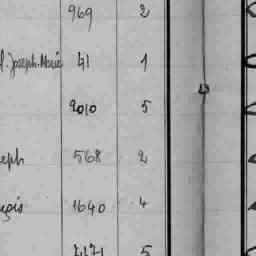 969 2
f. Joseph-Marie 41 1
2010 5
eph 568 2
çois 1640 4
5